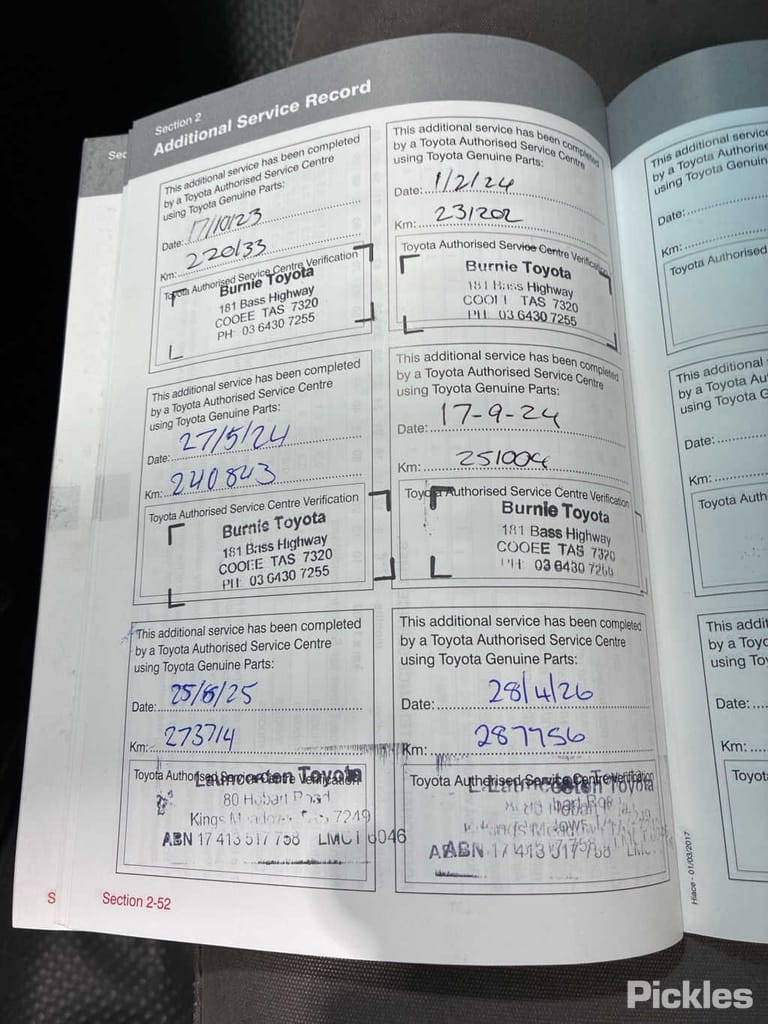 Section 2
Additional Service Record
This additional service has been completed
by a Toyota Authorised Service Centre
using Toyota Genuine Parts:
Date: 17/10/23
Km: 220133
Toyota Authorised Service Centre Verification
Burnie Toyota
181 Bass Highway
COOEE TAS 7320
PH: 03 6430 7255
This additional service has been completed
by a Toyota Authorised Service Centre
using Toyota Genuine Parts:
Date: 1/2/24
Km: 231202
Toyota Authorised Service Centre Verification
Burnie Toyota
181 Bass Highway
COOEE TAS 7320
PH: 03 6430 7255
This additional service has been completed
by a Toyota Authorised Service Centre
using Toyota Genuine Parts:
Date: 27/5/24
Km: 240843
Toyota Authorised Service Centre Verification
Burnie Toyota
181 Bass Highway
COOEE TAS 7320
PH: 03 6430 7255
This additional service has been completed
by a Toyota Authorised Service Centre
using Toyota Genuine Parts:
Date: 17-9-24
Km: 251004
Toyota Authorised Service Centre Verification
Burnie Toyota
181 Bass Highway
COOEE TAS 7320
PH: 03 6430 7255
This additional service has been completed
by a Toyota Authorised Service Centre
using Toyota Genuine Parts:
Date: 25/6/25
Km: 273714
Toyota Authorised Service Centre Verification
Launceston Toyota
80 Hobart Road
Kings Meadows TAS 7249
ABN 17 413 517 758 LMCT 6046
This additional service has been completed
by a Toyota Authorised Service Centre
using Toyota Genuine Parts:
Date: 28/4/26
Km: 287756
Toyota Authorised Service Centre Verification
Launceston Toyota
ABN 17 413 517 758
Section 2-52
Hiace - 01/03/2017
This additional
by a Toyota
using Toyota
Date:
Km:
Toyota Authorised
This additional
by a Toyota
using Toyota
Date:
Km:
Toyota
using
Date:
Km:
Pickles